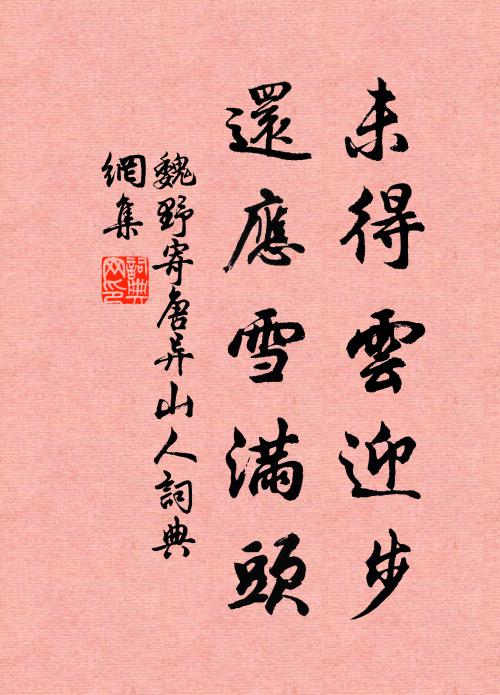 未得雲迎步
還應雪滿頭
魏野寄唐异山人詞典
網集
詞典
网印